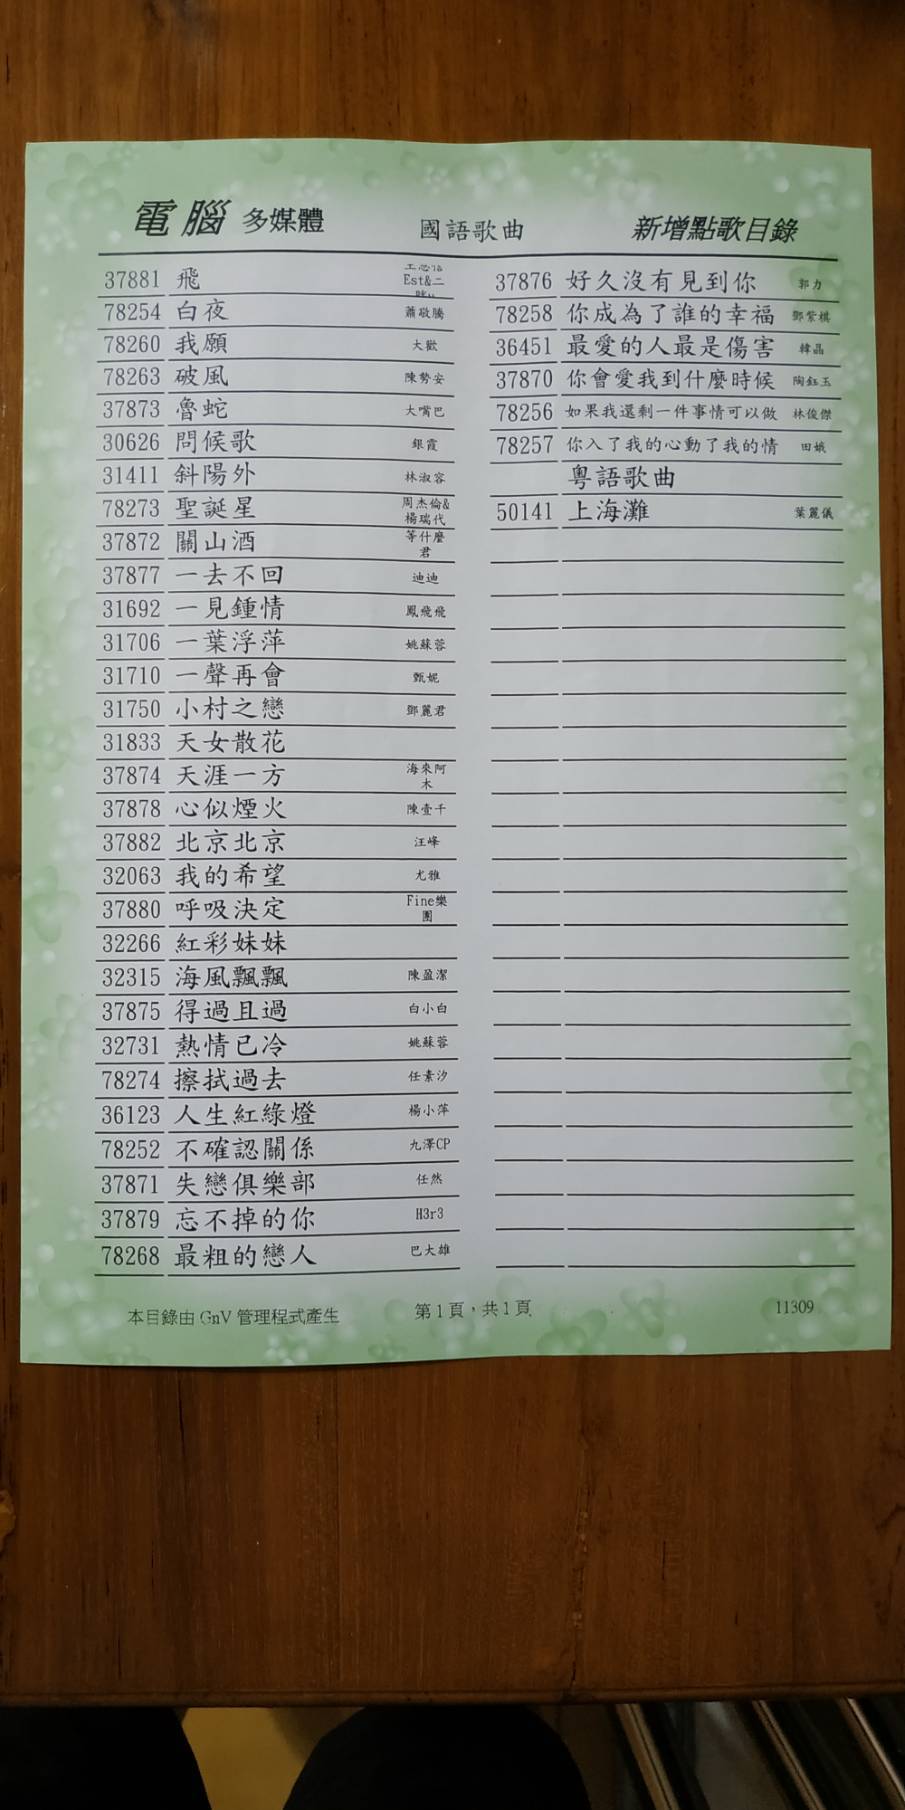 電腦 多媒體 國語歌曲 新增點歌目錄
37881 飛 Est&二
78254 白夜 蕭敬騰
78260 我願 大歡
78263 破風 陳勢安
37873 魯蛇 大嘴巴
30626 問候歌 銀霞
31411 斜陽外 林淑容
78273 聖誕星 周杰倫&
楊瑞代
37872 關山酒 等什麼
君
37877 一去不回 迪迪
31692 一見鍾情 鳳飛飛
31706 一葉浮萍 姚蘇蓉
31710 一聲再會 甄妮
31750 小村之戀 鄧麗君
31833 天女散花
37874 天涯一方 海來阿
木
37878 心似煙火 陳壹千
37882 北京北京 汪峰
32063 我的希望 尤雅
37880 呼吸決定 Fine樂
團
32266 紅彩妹妹
32315 海風飄飄 陳盈潔
37875 得過且過 白小白
32731 熱情已冷 姚蘇蓉
78274 擦拭過去 任素汐
36123 人生紅綠燈 楊小萍
78252 不確認關係 九澤CP
37871 失戀俱樂部 任然
37879 忘不掉的你 H3r3
78268 最粗的戀人 巴大雄
37876 好久沒有見到你 郭力
78258 你成為了誰的幸福 鄧紫棋
36451 最愛的人最是傷害 韓晶
37870 你會愛我到什麼時候 陶鈺玉
78256 如果我還剩一件事情可以做 林俊傑
78257 你入了我的心動了我的情 田娥
粵語歌曲
50141 上海灘 葉麗儀
本目錄由 GnV 管理程式產生 第1頁，共1頁 11309